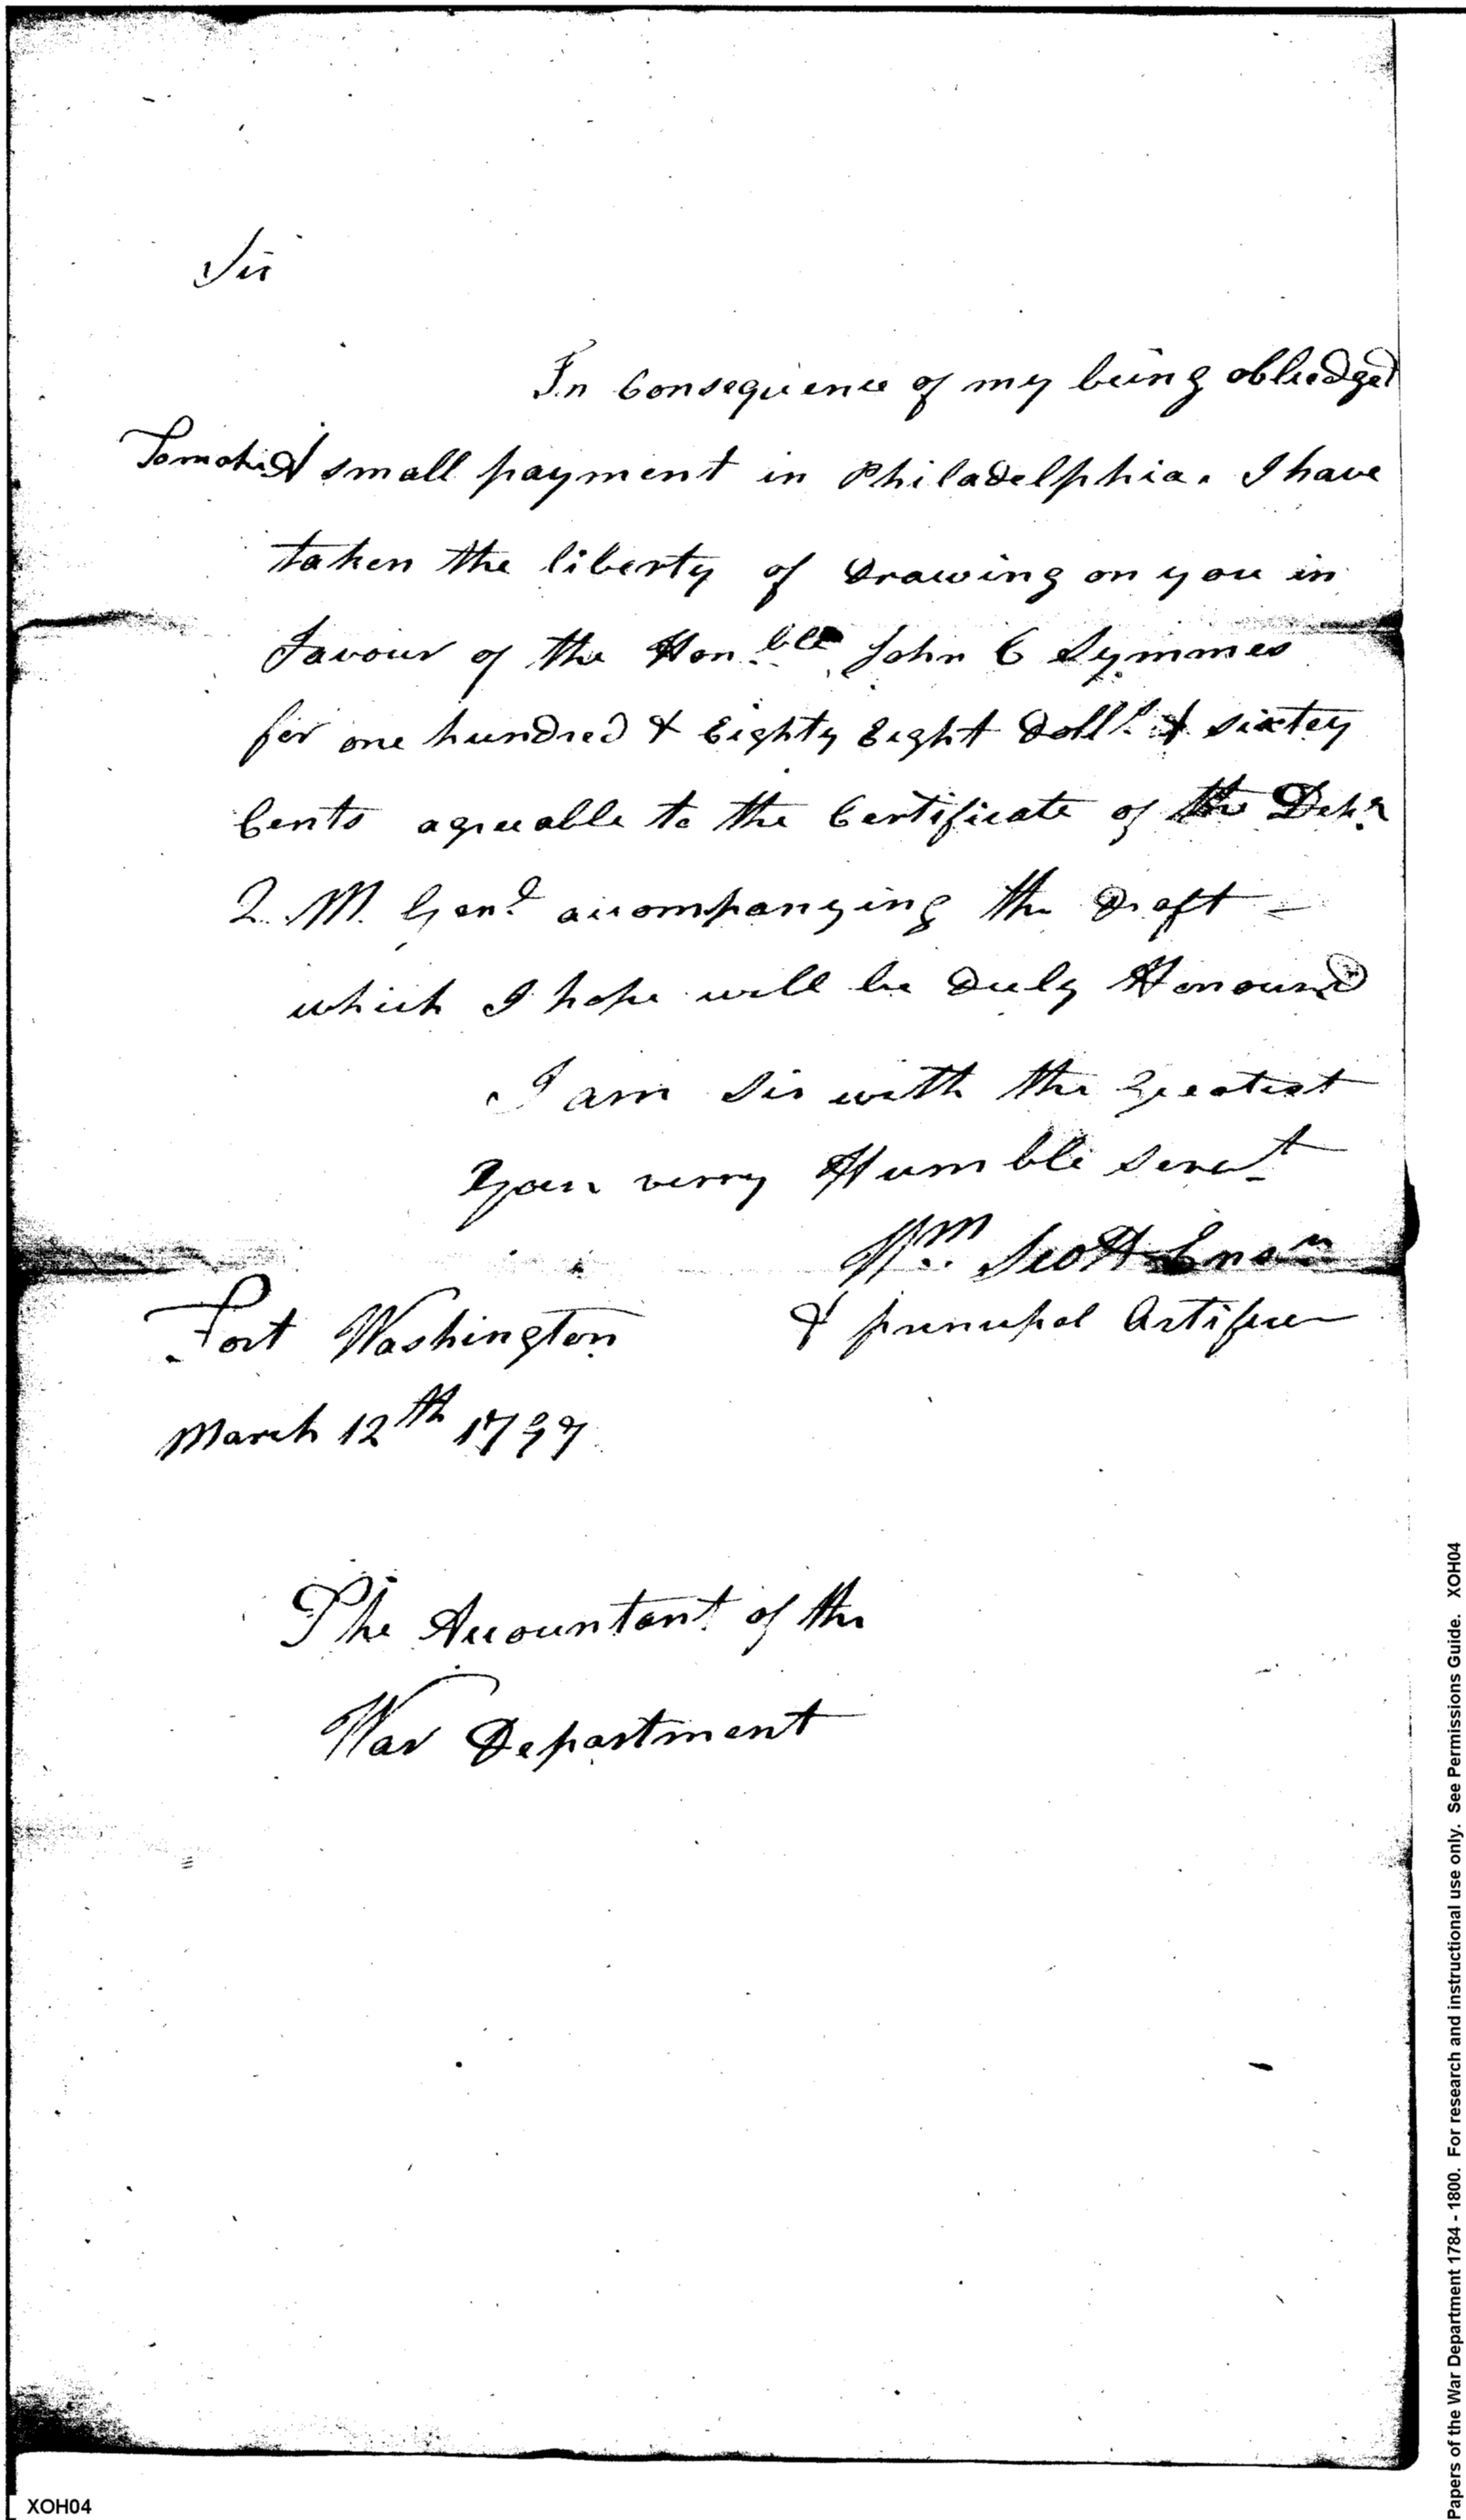 Sir
In Consequence of my being obliedged
To make a small payment in Philadelphia. I have
taken the liberty of Drawing on you in
favour of the Hon.ble John C Symmes
for one hundred & Eighty Eight Doll.s & sixtey
Cents agreeable to the Certificate of the Dep.y
Q. M. Gen.l accompanying the Draft —
which I hope will be Duly Honoured
I am Sir with the Greatest
Your verry Humble Serv.t
W.m Scott Ens.n
& principal Artificer
Fort Washington
March 12th 1797
The Accountant of the
War Department
Papers of the War Department 1784 - 1800. For research and instructional use only. See Permissions Guide. XOH04
XOH04